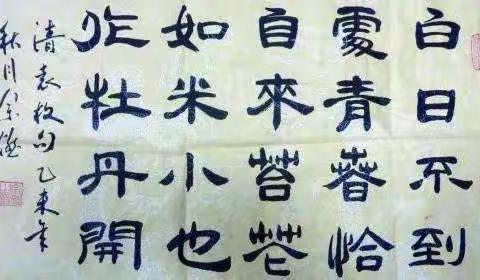 白日不到
處青春恰
自來苔花
如米小也
作牡丹開
清袁枚句乙未年
秋月